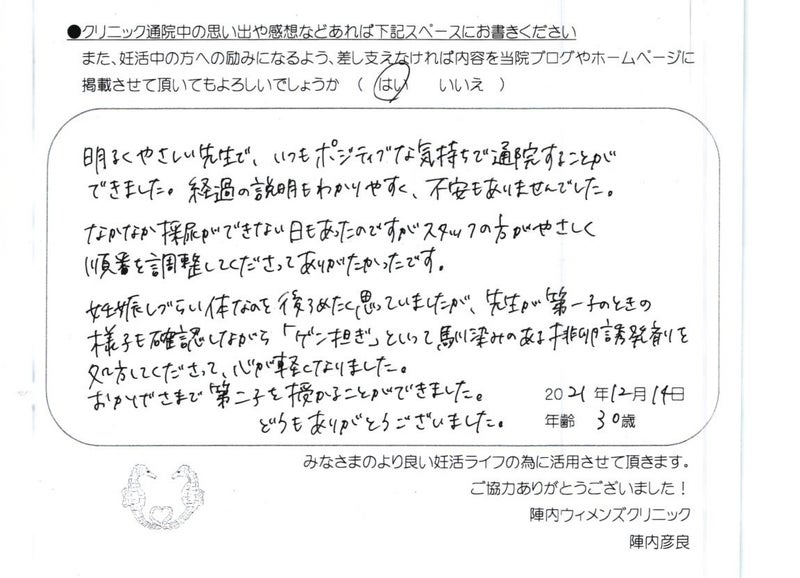 ●クリニック通院中の思い出や感想などあれば下記スペースにお書きください
また、妊活中の方への励みになるよう、差し支えなければ内容を当院ブログやホームページに
掲載させて頂いてもよろしいでしょうか （ はい　　いいえ ）
明るくやさしい先生で、いつもポジティブな気持ちで通院することが
できました。経過の説明もわかりやすく、不安もありませんでした。
なかなか採尿ができない日もあったのですがスタッフの方がやさしく
順番を調整してくださってありがたかったです。
妊娠しづらい体なのを後ろめたく思っていましたが、先生が第一子のときの
様子も確認しながら「ゲン担ぎ」といって馴染みのある排卵誘発剤を
処方してくださって、心が軽くなりました。
おかげさまで第二子を授かることができました。
どうもありがとうございました。
2021年12月14日
年齢 30歳
みなさまのより良い妊活ライフの為に活用させて頂きます。
ご協力ありがとうございました！
陣内ウィメンズクリニック
陣内彦良